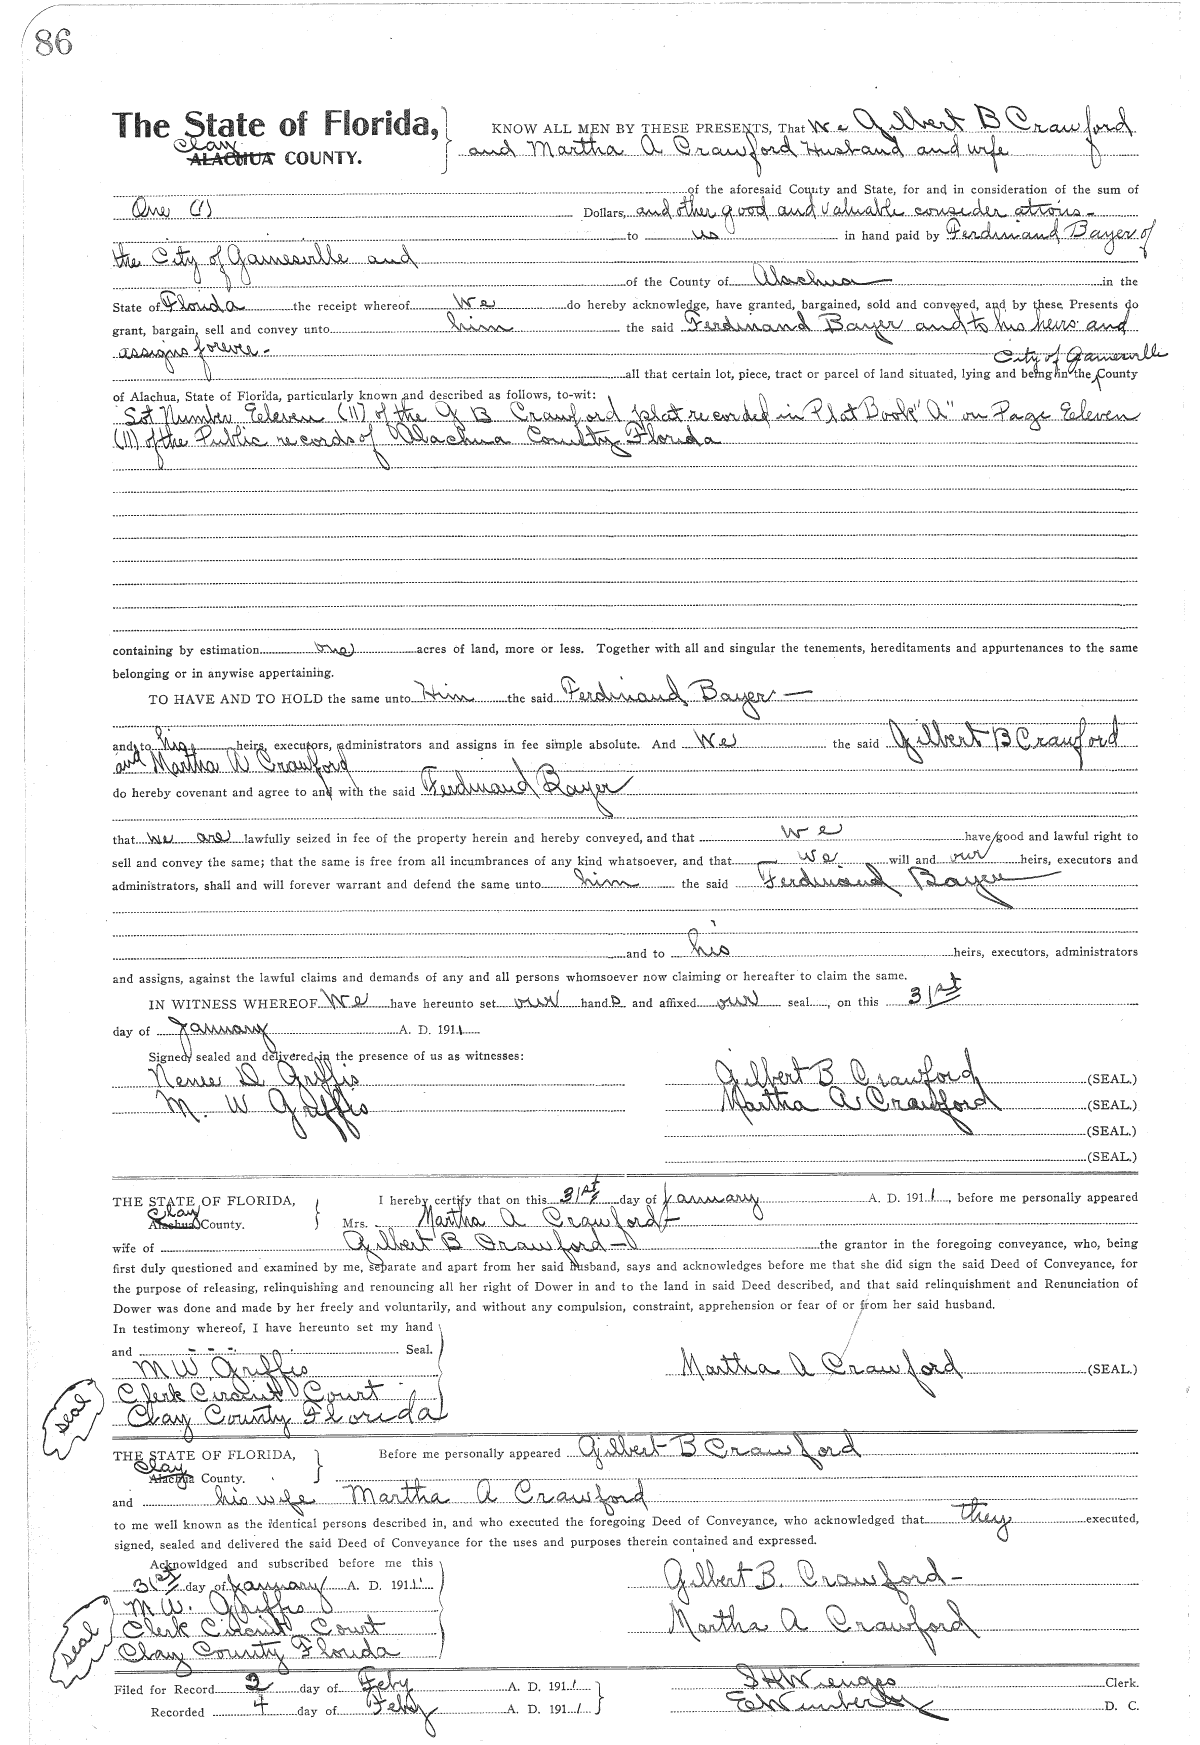 86
The State of Florida, KNOW ALL MEN BY THESE PRESENTS, That We Gilbert B Crawford
Clay
ALACHUA COUNTY. and Martha A Crawford Husband and wife
of the aforesaid County and State, for and in consideration of the sum of
One (1) Dollars, and other good and valuable consider ations -
to us in hand paid by Ferdinand Bayer of
the City of Gainesville and
of the County of Alachua in the
State of Florida the receipt whereof We do hereby acknowledge, have granted, bargained, sold and conveyed, and by these Presents do
grant, bargain, sell and convey unto him the said Ferdinand Bayer and to his heirs and
assigns forevre -
City of Gainesville
all that certain lot, piece, tract or parcel of land situated, lying and being in the County
of Alachua, State of Florida, particularly known and described as follows, to-wit:
Lot Number Eeleven (11) of the G B Crawford plat recorded in Plat Book "A" on Page Eeleven
(11) of the Public records of Alachua County Florida
containing by estimation one acres of land, more or less. Together with all and singular the tenements, hereditaments and appurtenances to the same
belonging or in anywise appertaining.
TO HAVE AND TO HOLD the same unto Him the said Ferdinand Bayer —
and to his heirs, executors, administrators and assigns in fee simple absolute. And We the said Gilbert B Crawford
and Martha A Crawford
do hereby covenant and agree to and with the said Ferdinand Bayer
that we are lawfully seized in fee of the property herein and hereby conveyed, and that we have good and lawful right to
sell and convey the same; that the same is free from all incumbrances of any kind whatsoever, and that we will and our heirs, executors and
administrators, shall and will forever warrant and defend the same unto him the said Ferdinand Bayer
and to his heirs, executors, administrators
and assigns, against the lawful claims and demands of any and all persons whomsoever now claiming or hereafter to claim the same.
IN WITNESS WHEREOF We have hereunto set our hands and affixed our seal, on this 31st
day of January A. D. 1911
Signed, sealed and delivered in the presence of us as witnesses:
D Griffis Gilbert B Crawford (SEAL.)
M. W Griffis Martha A Crawford (SEAL.)
(SEAL.)
(SEAL.)
THE STATE OF FLORIDA, I hereby certify that on this 31st day of January A. D. 1911, before me personally appeared
Clay
Alachua County. Mrs. Martha A Crawford
wife of Gilbert B Crawford - the grantor in the foregoing conveyance, who, being
first duly questioned and examined by me, separate and apart from her said husband, says and acknowledges before me that she did sign the said Deed of Conveyance, for
the purpose of releasing, relinquishing and renouncing all her right of Dower in and to the land in said Deed described, and that said relinquishment and Renunciation of
Dower was done and made by her freely and voluntarily, and without any compulsion, constraint, apprehension or fear of or from her said husband.
In testimony whereof, I have hereunto set my hand
and - - - Seal.
M W Griffis Martha A Crawford (SEAL.)
Clerk Circuit Court
seal Clay County Florida
THE STATE OF FLORIDA, Before me personally appeared Gilbert B Crawford
Clay
Alachua County.
and his wife Martha A Crawford
to me well known as the identical persons described in, and who executed the foregoing Deed of Conveyance, who acknowledged that they executed,
signed, sealed and delivered the said Deed of Conveyance for the uses and purposes therein contained and expressed.
Acknowldged and subscribed before me this
31st day of January A. D. 1911 Gilbert B. Crawford -
M. W. Griffis
Clerk Circuit Court Martha A Crawford
seal Clay County Florida
Filed for Record 2 day of Feby A. D. 1911 S H Wienges Clerk.
Recorded 4 day of Feby A. D. 1911 E Wimberly D. C.